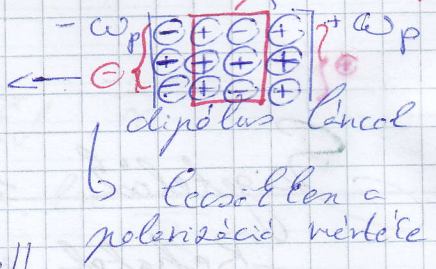 - ωp ⊖ ⊕ ⊖ ⊕ + ωp
⊖ ⊕ ⊕ ⊕ ⊕ ⊕
⊖ ⊕ ⊖ ⊕
dipólus láncok
lecsökken a
polarizáció mértéke